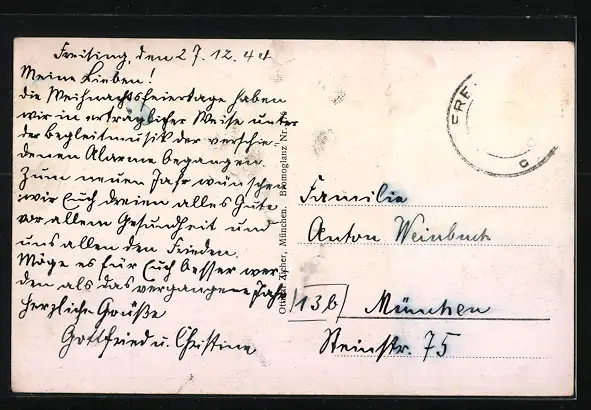 Freising, den 27.12.44
Meine Lieben!
Die Weihnachtsfeiertage haben
wir in erträglicher Weise unter
der Begleitmusik der verschie-
denen Alarme begangen.
Zum neuen Jahr wünschen
wir Euch dreien alles Gute
vor allem Gesundheit und
uns allen den Frieden.
Möge es für Euch besser wer-
den als das vergangene Jahr
Herzliche Grüße
Gottfried u. Christine
München. Bromoglanz Nr.
FRE
Familie
Anton Weinbuch
13b
München
Steinstr. 75